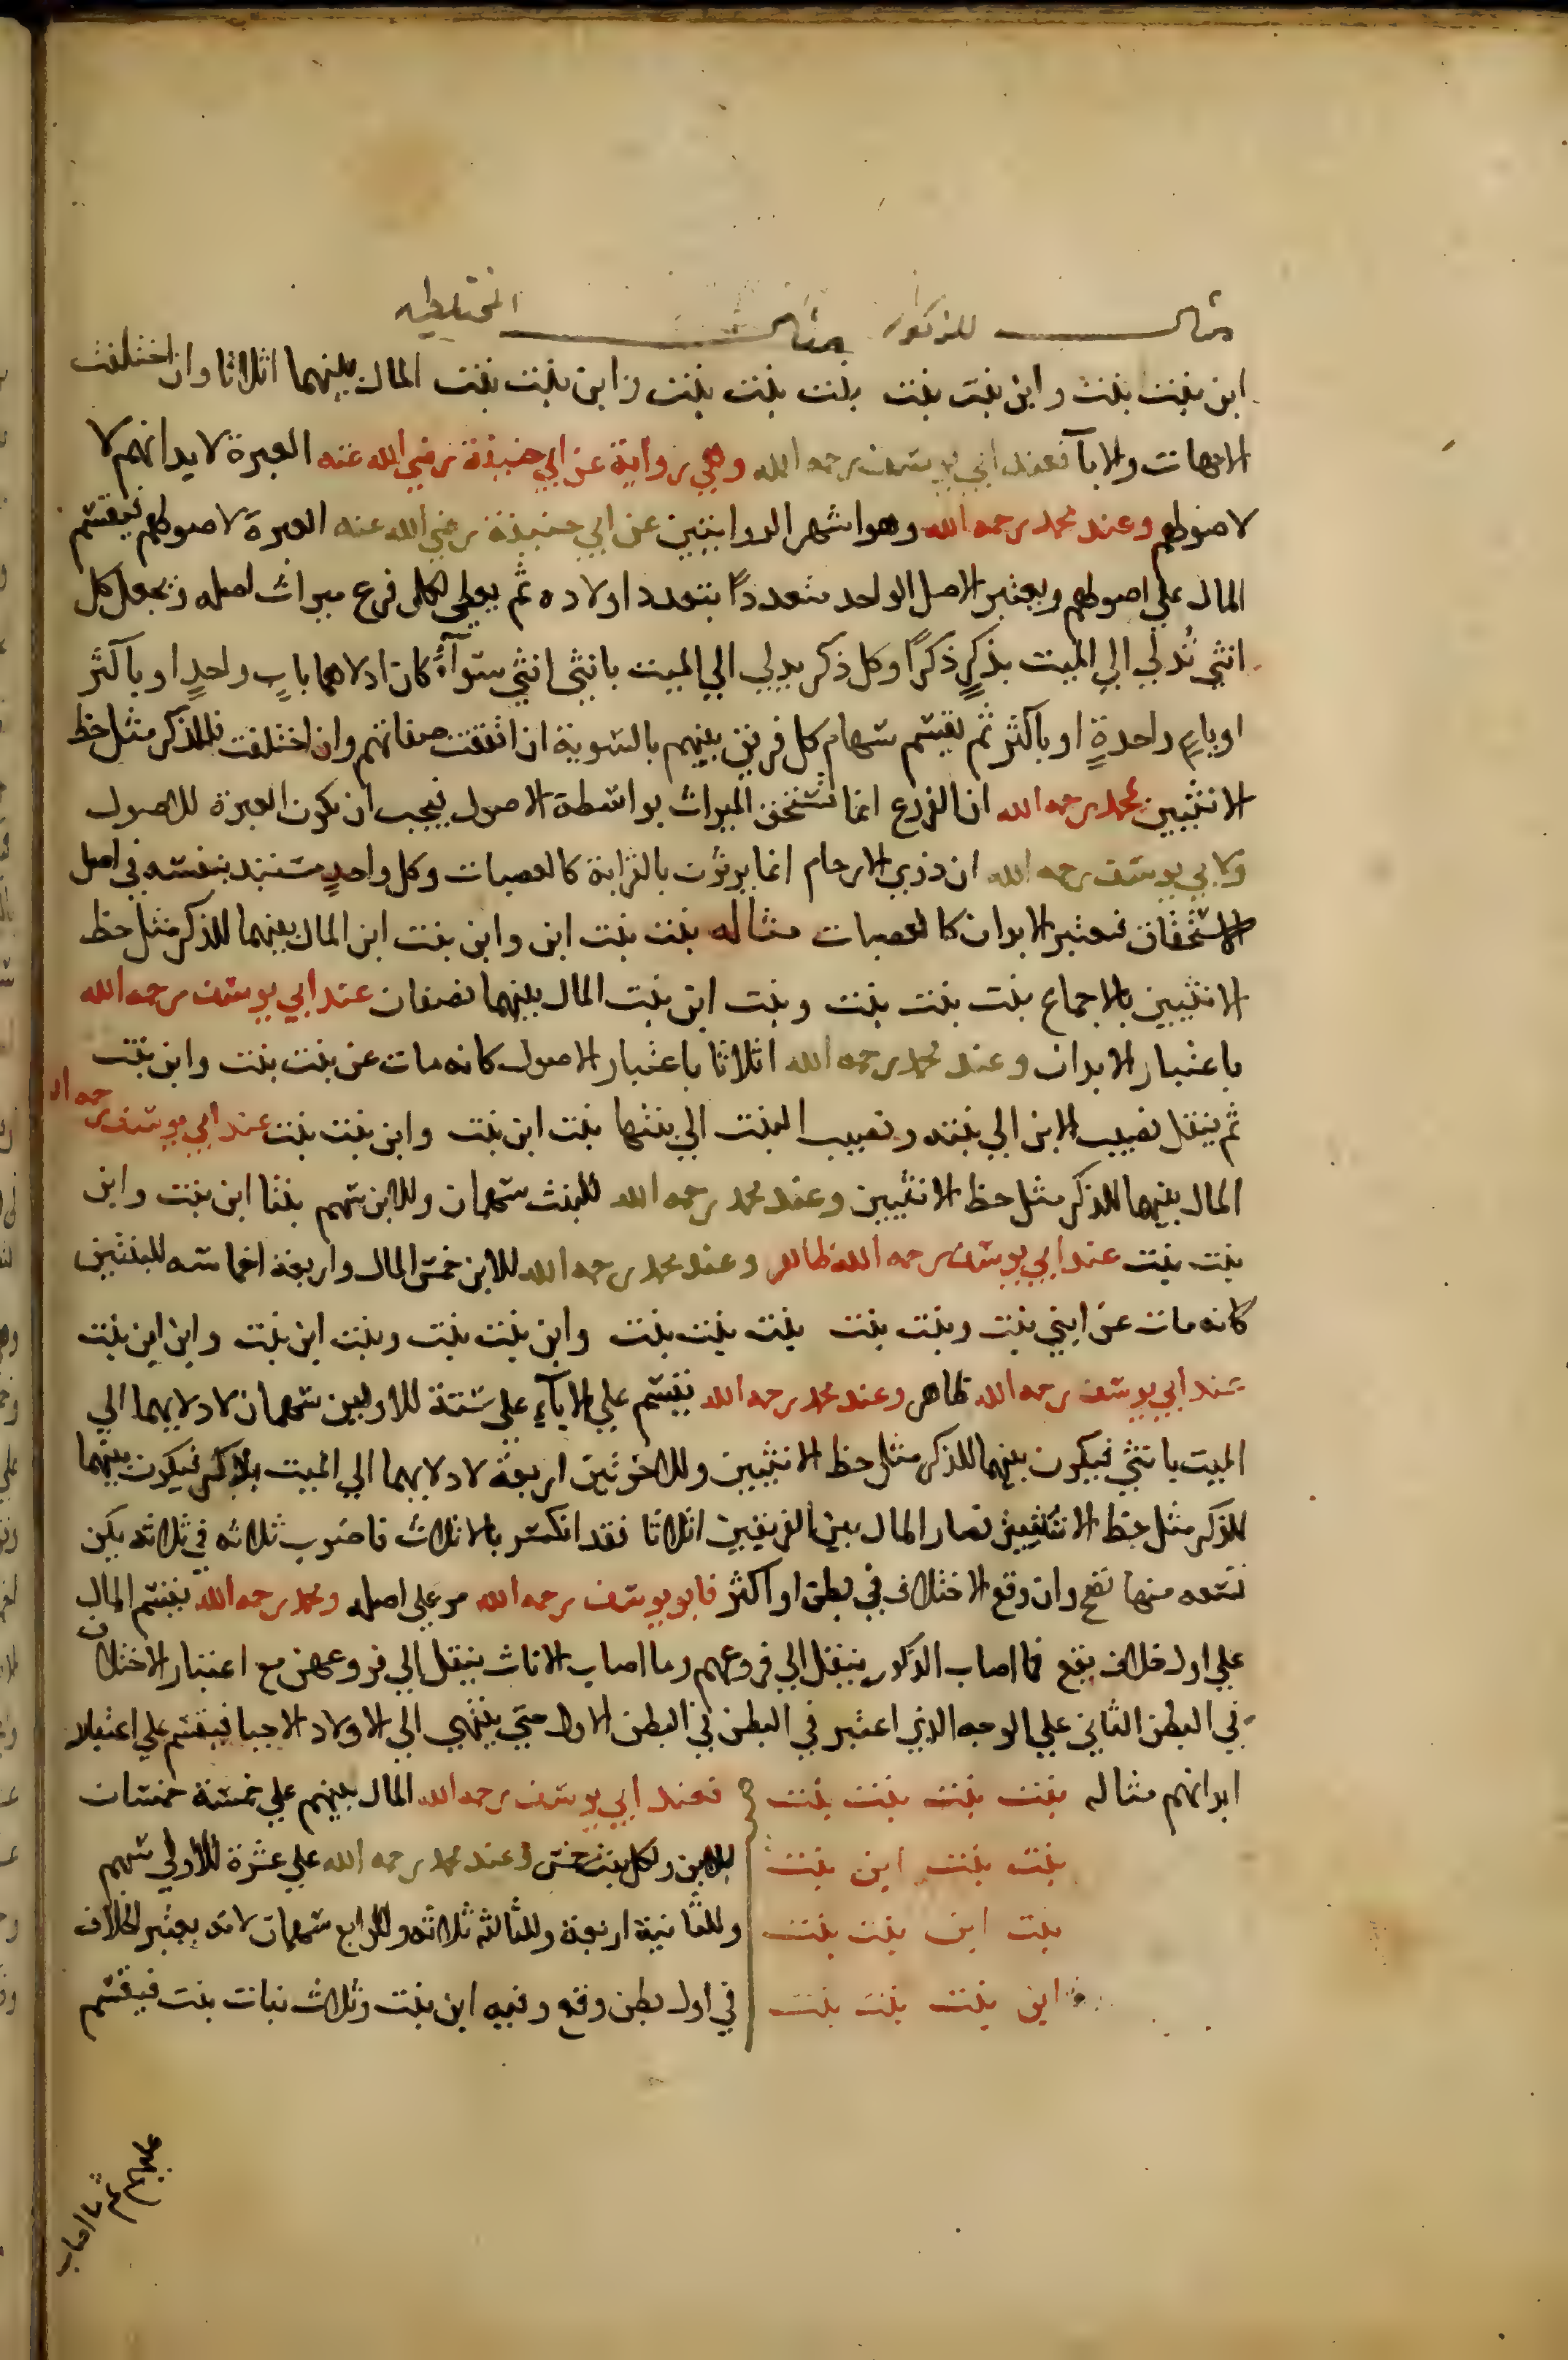 مثال للذكور مثال المختلطين
ابن بنت بنت وابن بنت بنت بنت بنت بنت وابن بنت بنت المال بينهما اثلاثا وان اختلفت
الامهات والابآ فعند ابي يوسف رحمه الله وهي رواية عن ابي حنيفة رضي الله عنه العبرة لابدانهم لا
لاصولهم وعند محمد رحمه الله وهو اشهر الروايتين عن ابي حنيفة رضي الله عنه العبرة لاصولهم فيقسم
المال علي اصولهم ويعتبر الاصل الواحد متعددًا بتعدد اولاده ثم يعطي لكل فرع ميراث اصله ويجعل كل
انثي تُدلي الي الميت بذكرٍ ذكرًا وكل ذكر يدلي الي الميت بانثي انثي سوآءً كان ادلاهما بابٍ واحدٍ او باكثر
او بامٍ واحدةٍ او باكثر ثم يقسم سهام كل فريق بينهم بالسوية ان اتفقت صفاتهم وان اختلفت فللذكر مثل حظ
الانثيين محمد رحمه الله ان الفرع انما تستحق الميراث بواسطة الاصول فيجب ان يكون العبرة للاصول
ولابي يوسف رحمه الله ان ذوي الارحام انما يرثون بالقرابة كالعصبات وكل واحدٍ مستبد بنفسه في اصل
الاستحقاق فيعتبر الابدان كالعصبات مثاله بنت بنت ابن وابن بنت ابن المال بينهما للذكر مثل حظ
الانثيين بالاجماع بنت بنت بنت وبنت ابن بنت المال بينهما نصفان عند ابي يوسف رحمه الله
باعتبار الابدان وعند محمد رحمه الله اثلاثا باعتبار الاصول كانه مات عن بنت بنت وابن بنت
ثم ينتقل نصيب الابن الي بنته ونصيب البنت الي بنتها بنت ابن بنت وابن بنت بنت عند ابي يوسف رحمه ال
المال بينهما للذكر مثل حظ الانثيين وعند محمد رحمه الله للبنت سهمان وللابن سهم بنتا ابن بنت وابن
بنت بنت عند ابي يوسف رحمه الله ظاهر وعند محمد رحمه الله للابن خمس المال واربعة اخماسه للبنتين
كانه مات عن ابني بنت وبنت بنت بنت بنت بنت وابن بنت بنت وبنت ابن بنت وابن ابن بنت
عند ابي يوسف رحمه الله ظاهر وعند محمد رحمه الله يقسم علي الابآءِ علي ستة للاوليين سهمان لادلايهما الي
الميت بانثي فيكون بينهما للذكر مثل حظ الانثيين وللاخريين اربعة لادلايهما الي الميت بذكر فيكون بينهما
للذكر مثل حظ الانثيين فصار المال بين الفريقين اثلاثا فقد انكسر بالاثلاث فاضرب ثلاثه في ثلاثه يكن
تسعه منها تصح وان وقع الاختلاف في بطن او اكثر فابو يوسف رحمه الله مر علي اصله ومحمد رحمه الله يقسم المال
علي اول خلاف يقع فما اصاب الذكور ينتقل الي فروعهم وما اصاب الاناث ينتقل الي فروعهن مع اعتبار الاختلاف
في البطن الثاني علي الوجه الذي اعتبر في البطن في البطن الاول حتي ينتهي الي الاولاد الاحيا فيقسم علي اعتبار
ابدانهم مثاله بنت بنت بنت بنت فعند ابي يوسف رحمه الله المال بينهم علي خمسة خمسان
بنت بنت ابن بنت للابن ولكل بنت خمس وعند محمد رحمه الله علي عشرة للاولي سهم
بنت ابن بنت بنت وللثانية اربعة وللثالثه ثلاثه وللرابع سهمان لانه يعتبر الخلاف
ابن بنت بنت بنت في اول بطن وقع وفيه ابن بنت وثلاث بنات بنت فيقسم
عليهم ثم ما اصاب